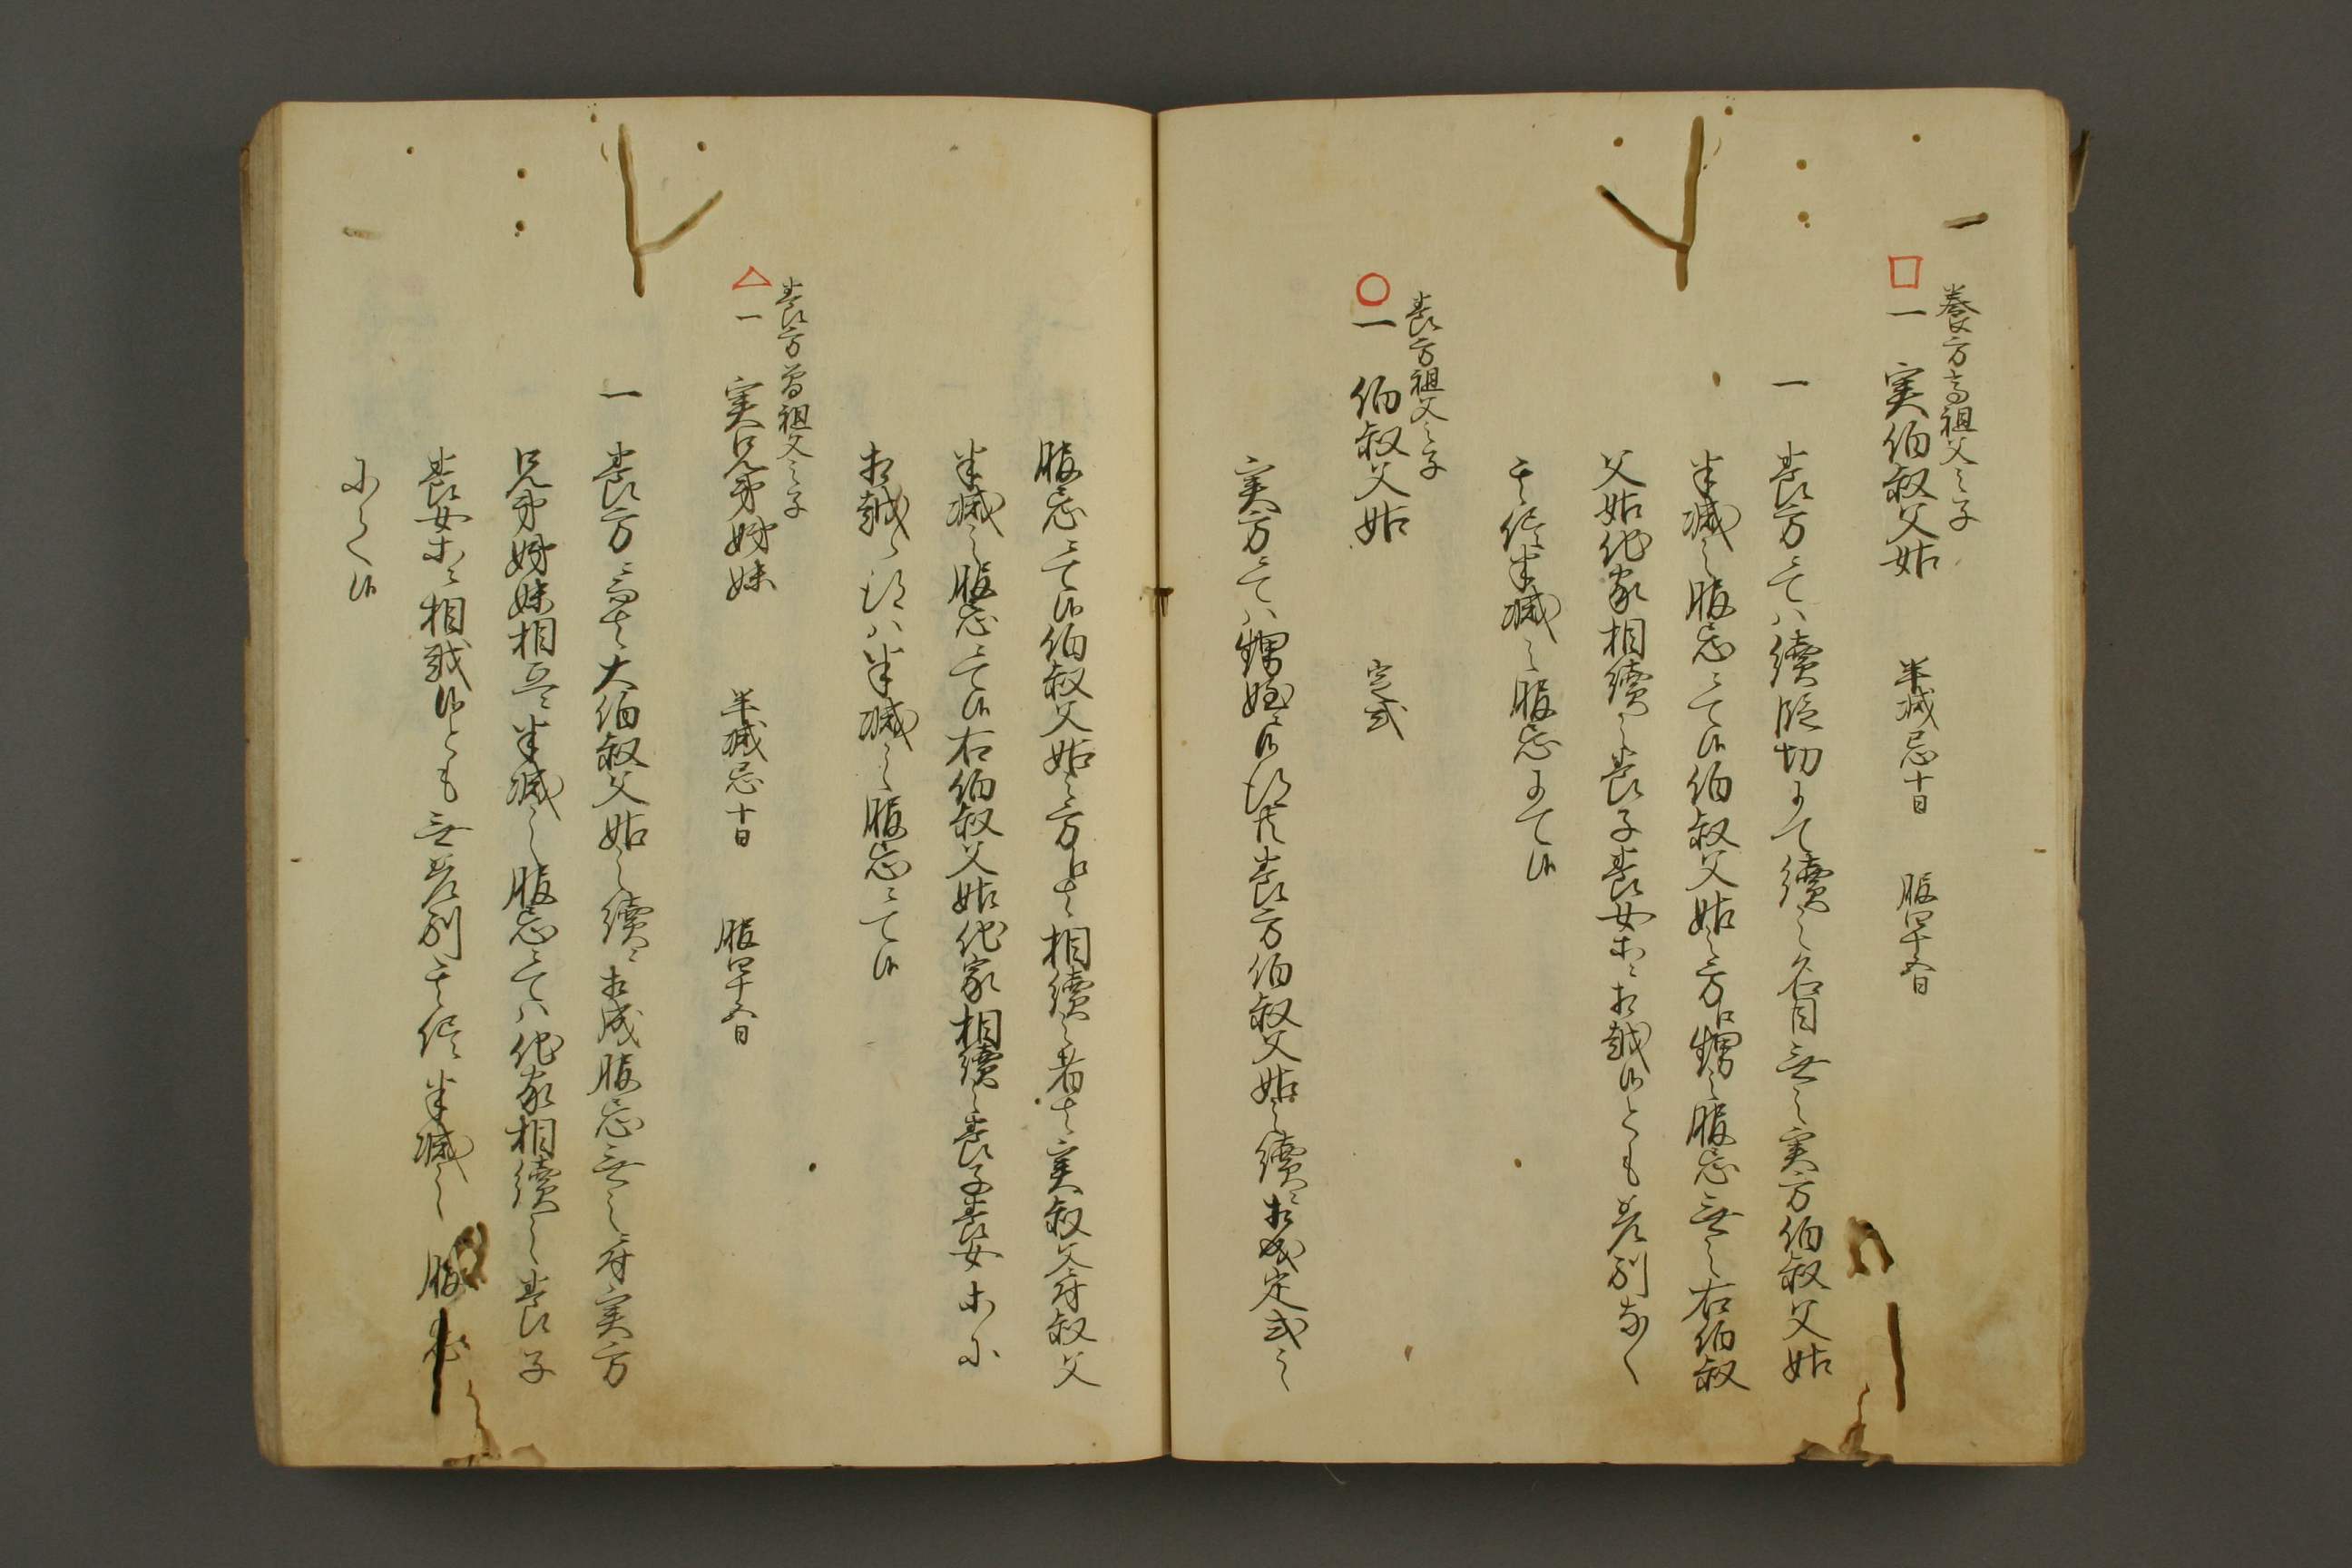 養方高祖父之子
一 実伯叔父姑 半減忌十日 服四十五日
一 養方ニ而ハ續隔切にて續之名目無之実方伯叔父姑
半減之服忌ニ而候伯叔父姑之方ゟ甥之服忌無之右伯叔
父姑他家相續之養子養女ホニ相越候とも差別なく
其侭半減之服忌にて候
養方祖父之子
一 伯叔父姑 定式
実方ニ而ハ甥姪ニ候得共養方伯叔父姑之續ニ相成定式之
服忌ニ而候伯叔父姑之方ゟも相續之者も実叔父姑叔父
半減之服忌ニ而候右伯叔父姑他家相續之養子養女ホニ
相越候得ハ半減之服忌ニて候
養方曽祖父之子
一 実兄弟姉妹 半減忌十日 服四十五日
一 養方ニ而も大伯叔父姑之續ニ相成服忌無之故実方
兄弟姉妹相互ニ半減之服忌ニ而ハ他家相續之養子
養女ホニ相越候とも無差別其侭半減之服忌
にて候